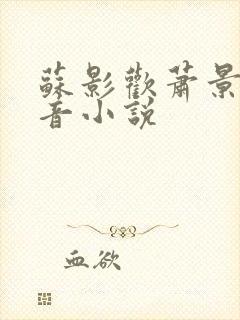 蘇影歡蕭景
音小說
血欲